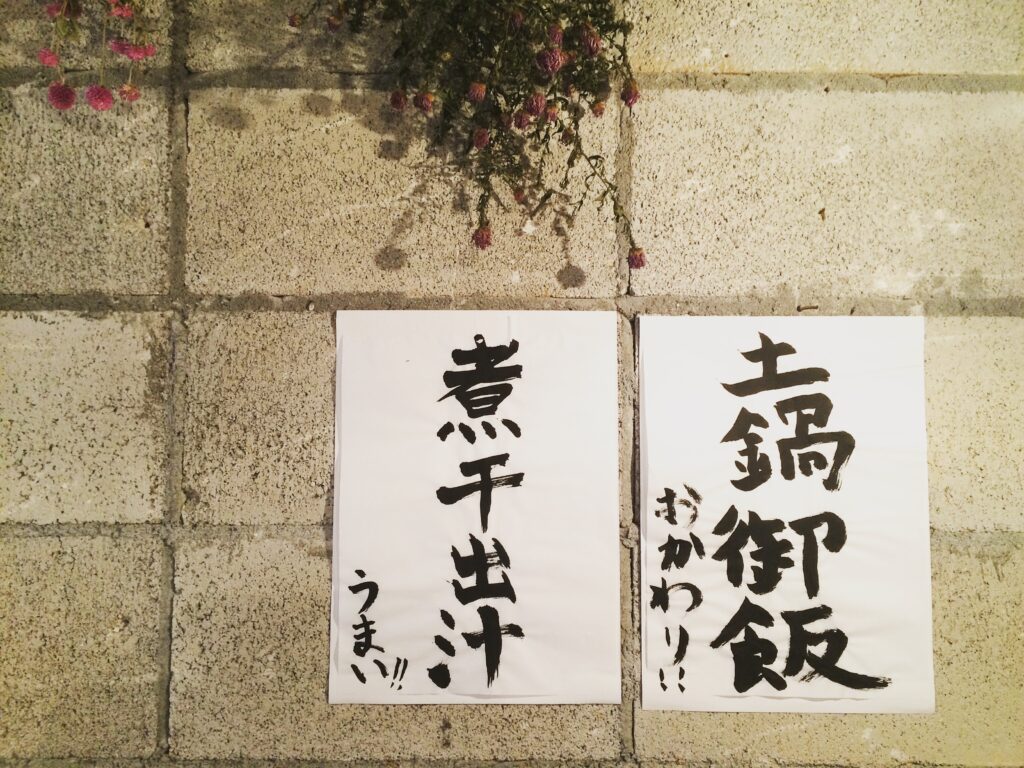 土鍋御飯
おかわり!!
煮干出汁
うまい!!